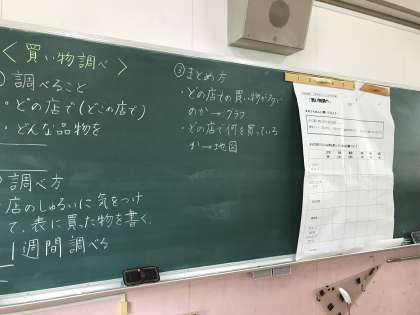 <買い物調べ>
①調べること
・どの店で(どこの店で)
・どんな品物を
②調べ方
・店のしゅるいに気をつけ
て、表に買った物を書く。
1週間調べる
③まとめ方
・どの店での買い物が多い
のか→グラフ
・どの店で何を買っている
か→地図